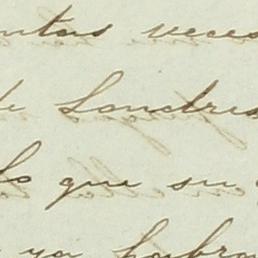 ntas veces
de Londres
lo que su
ya habra